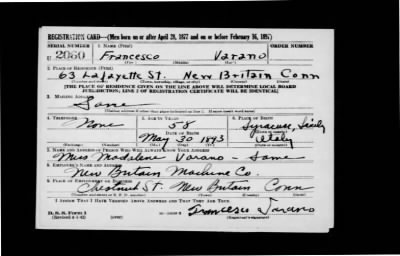 REGISTRATION CARD—(Men born on or after April 28, 1877 and on or before February 16, 1897)
SERIAL NUMBER 1. NAME (Print) ORDER NUMBER
U 2060 Francesco Varano
(First) (Middle) (Last)
2. PLACE OF RESIDENCE (Print)
63 Lafayette St. New Britain Conn
(Number and street) (Town, township, village, or city) (County) (State)
[THE PLACE OF RESIDENCE GIVEN ON THE LINE ABOVE WILL DETERMINE LOCAL BOARD
JURISDICTION; LINE 2 OF REGISTRATION CERTIFICATE WILL BE IDENTICAL]
3. MAILING ADDRESS
Same
[Mailing address if other than place indicated on line 2. If same insert word same]
4. TELEPHONE 5. AGE IN YEARS 6. PLACE OF BIRTH
None 58 Syracuse, Sicily
DATE OF BIRTH
May 30 1893 Italy
7. NAME AND ADDRESS OF PERSON WHO WILL ALWAYS KNOW YOUR ADDRESS
Miss Madalene Varano - Same
8. EMPLOYER'S NAME AND ADDRESS
New Britain Machine Co.
9. PLACE OF EMPLOYMENT OR BUSINESS
Chestnut St. New Britain Conn
(Number and street or R. F. D. number) (Town) (County) (State)
I AFFIRM THAT I HAVE VERIFIED ABOVE ANSWERS AND THAT THEY ARE TRUE.
D. S. S. Form 1
Francesco Varano
(Registrant's signature)